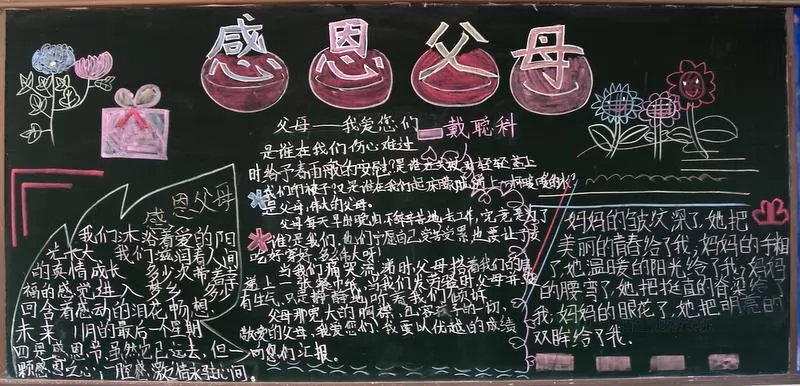 感恩父母
父母——我爱您们
戴聪科
是谁在我们伤心难过
时给予着雨般的安慰,是谁在失败时轻轻送上
我们的被子,又是谁在我们起床时递上一杯暖暖的水?
是父母,伟大的父母。
父母每天早出晚归不辞劳苦地去工作,究竟是为了
谁!是我们,他们宁愿自己受苦受累,也要让子孩
吃好穿好,多么伟人呀!
当我们痛哭流涕时,父母搭着我们的肩
递上一张餐巾纸,当我们发着脾时,父母并没
有生气,只是静静地听着我们倾诉。
父母那宽大的胸襟,宽容孩子的一切,
敬爱的父母,我爱您们,我要以优越的成绩
向您们汇报。
感恩父母
我们沐浴着爱的阳
光长大,我们滋润着人间
的真情成长,多少次带着幸
福的感觉进入梦乡,多少
回含着感动的泪花畅想
未来,11月的最后一个星期
四是感恩节,虽然它已过去,但一
颗感恩之心,一腔感激之情永驻心间。
妈妈的皱纹深了,她把
美丽的青春给了我;妈妈的手粗
了,她温暖的阳光给了我;妈妈
的腰弯了,她把挺直的脊梁给了
我;妈妈的眼花了,她把明亮的
双眸给了我.